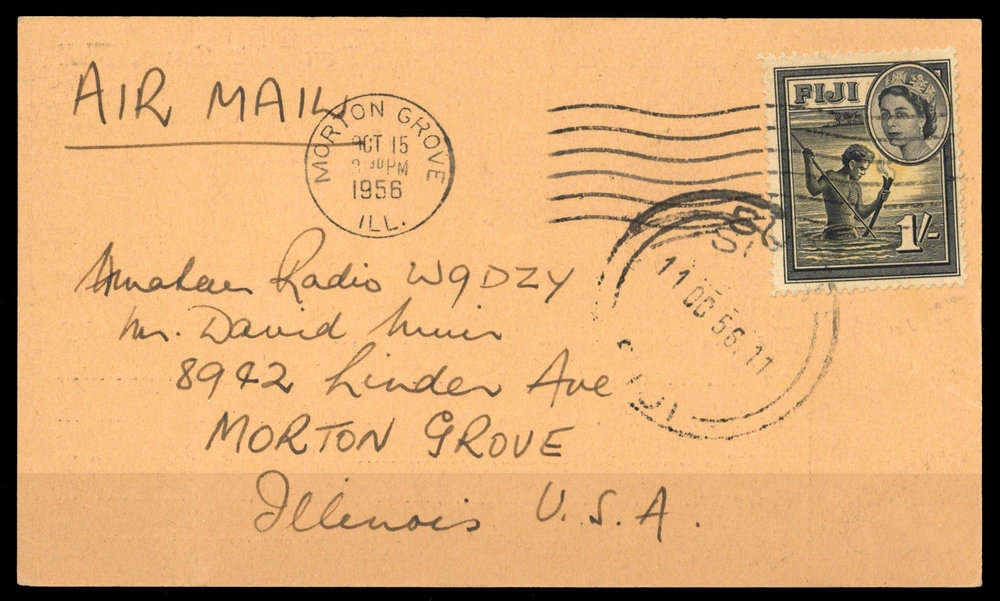 AIR MAIL
MORTON GROVE
OCT 15
30 PM
1956
ILL.
FIJI
1/-
SU
11 OC 56. 11
FIJI
Amateur Radio W9DZY
Mr. David Muir
8942 Linder Ave
MORTON GROVE
Illinois U.S.A.